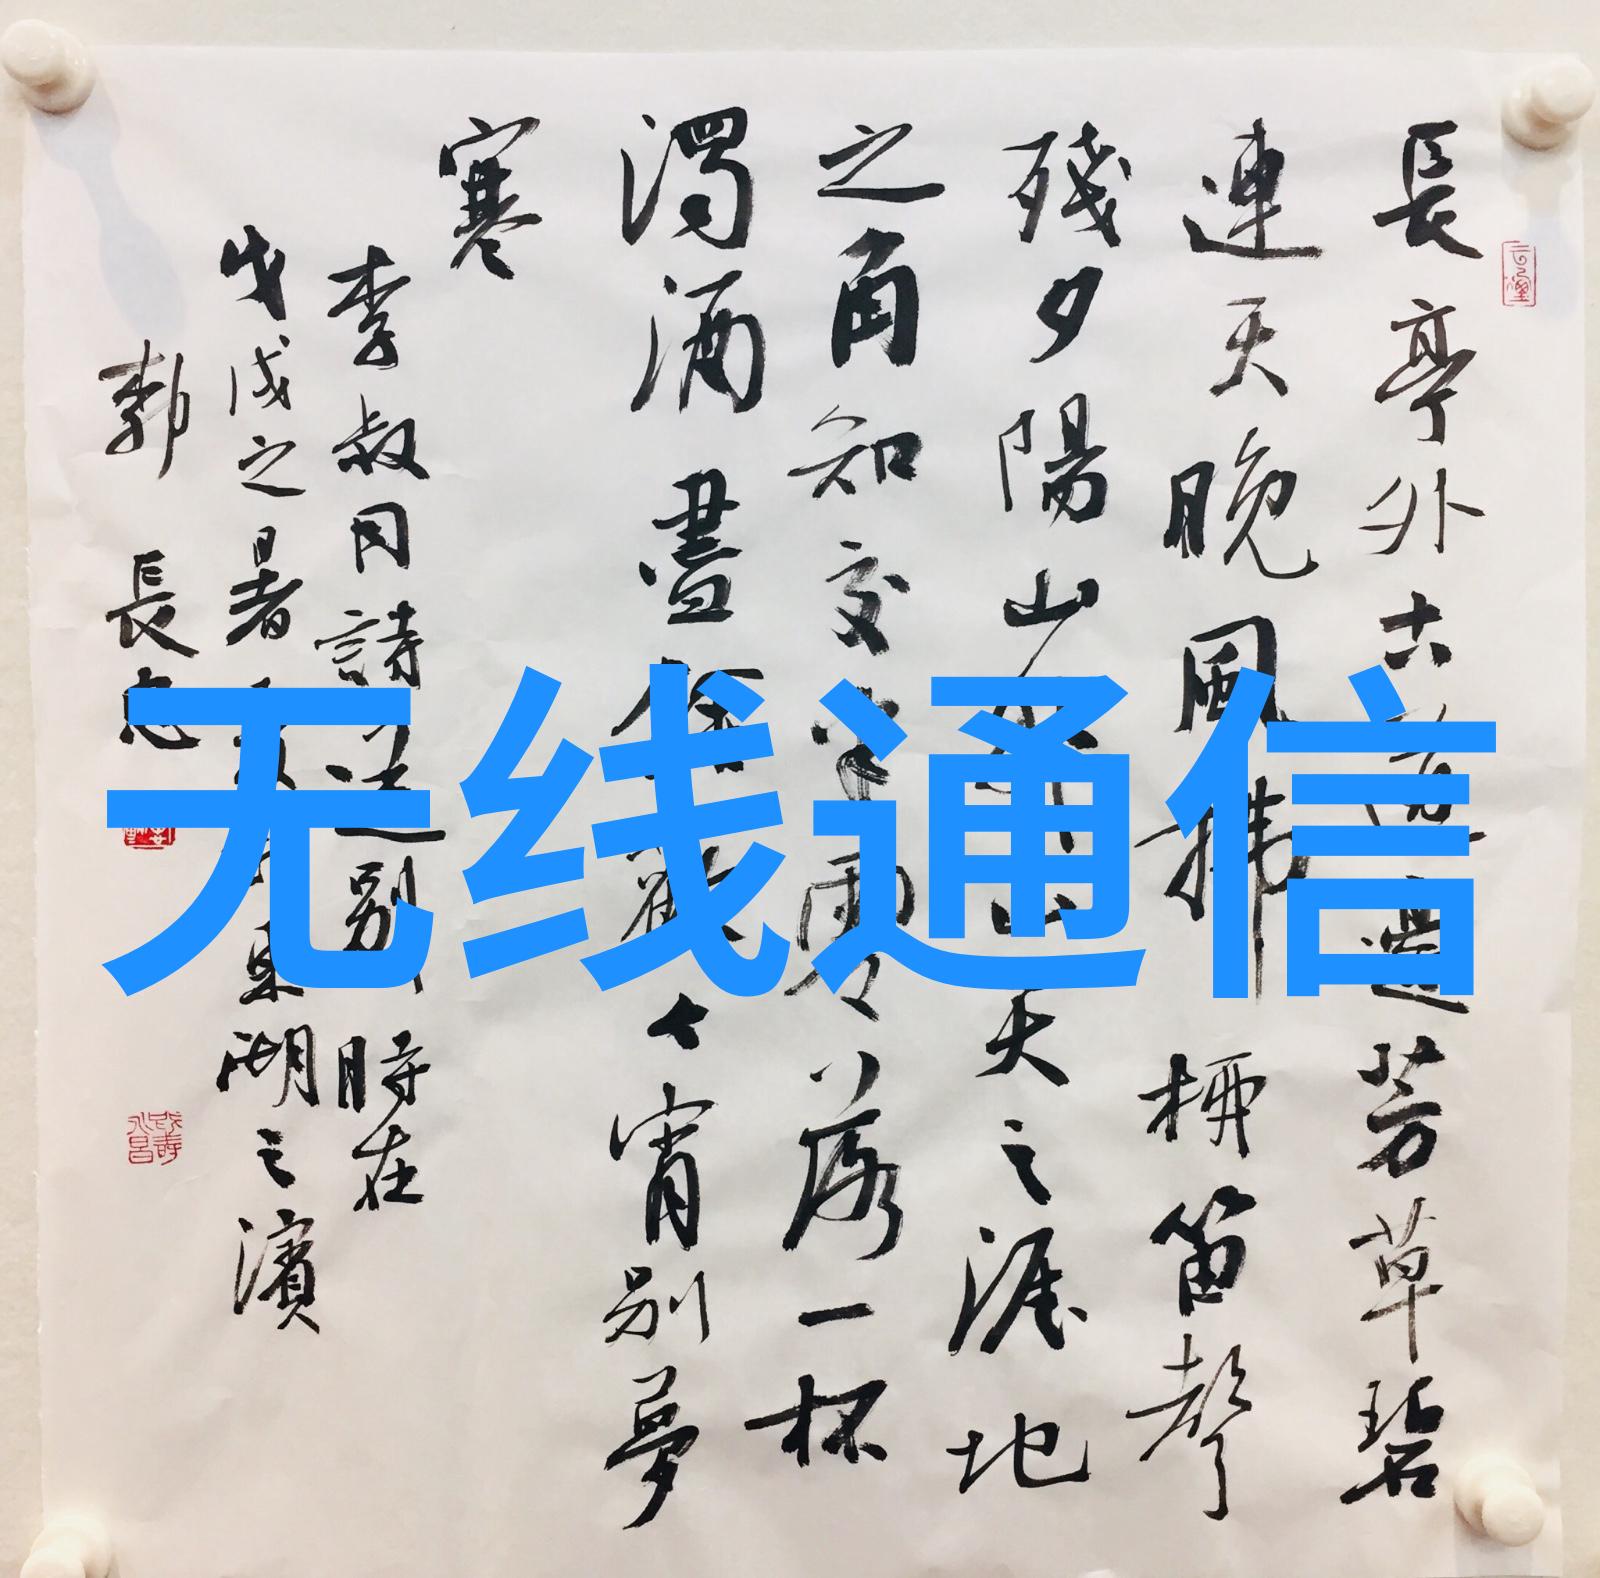 長亭外古道邊芳草碧
連天晚風拂柳笛聲
殘夕陽山外山天之涯地
之角知交半零落一杯
濁酒盡餘歡今宵別夢
寒
李叔同詩送別時在
戊戌之暑東湖之濱
郭長
无线通信